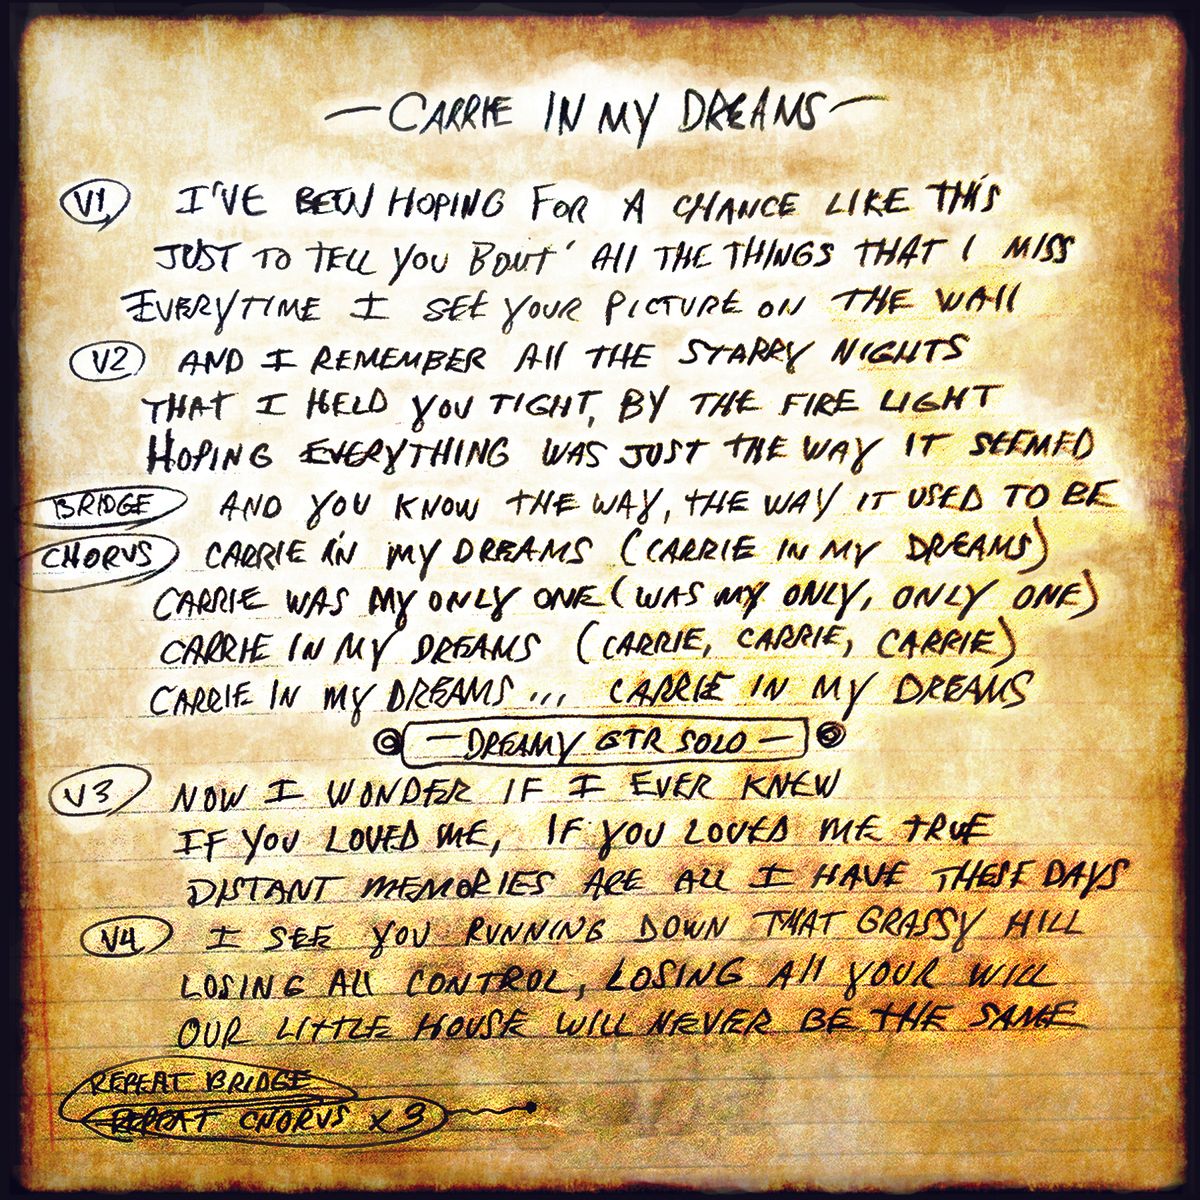 —CARRIE IN MY DREAMS—
V1 I'VE BEEN HOPING FOR A CHANCE LIKE THIS
JUST TO TELL YOU BOUT' All THE THINGS THAT I MISS
EVERYTIME I SEE YOUR PICTURE ON THE WAll
V2 AND I REMEMBER All THE STARRY NIGHTS
THAT I HELD YOU TIGHT, BY THE FIRE LIGHT
HOPING EVERYTHING WAS JUST THE WAY IT SEEMED
BRIDGE AND YOU KNOW THE WAY, THE WAY IT USED TO BE
CHORUS CARRIE IN MY DREAMS (CARRIE IN MY DREAMS)
CARRIE WAS MY ONLY ONE (WAS MY ONLY, ONLY ONE)
CARRIE IN MY DREAMS (CARRIE, CARRIE, CARRIE)
CARRIE IN MY DREAMS... CARRIE IN MY DREAMS
—DREAMY GTR SOLO—
V3 NOW I WONDER IF I EVER KNEW
IF YOU LOVED ME, IF YOU LOVED ME TRUE
DISTANT MEMORIES ARE ALL I HAVE THESE DAYS
V4 I SEE YOU RUNNING DOWN THAT GRASSY HILL
LOSING All CONTROL, LOSING All YOUR WILL
OUR LITTLE HOUSE WILL NEVER BE THE SAME
REPEAT BRIDGE
REPEAT CHORUS X 3